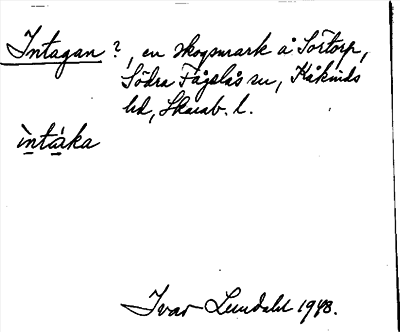 Intagan ?, en skogsmark å Sörtorp,
Södra Fågelås sn, Kåkinds
hd, Skarab. l.
ìntáka
Ivar Lundahl 1948.